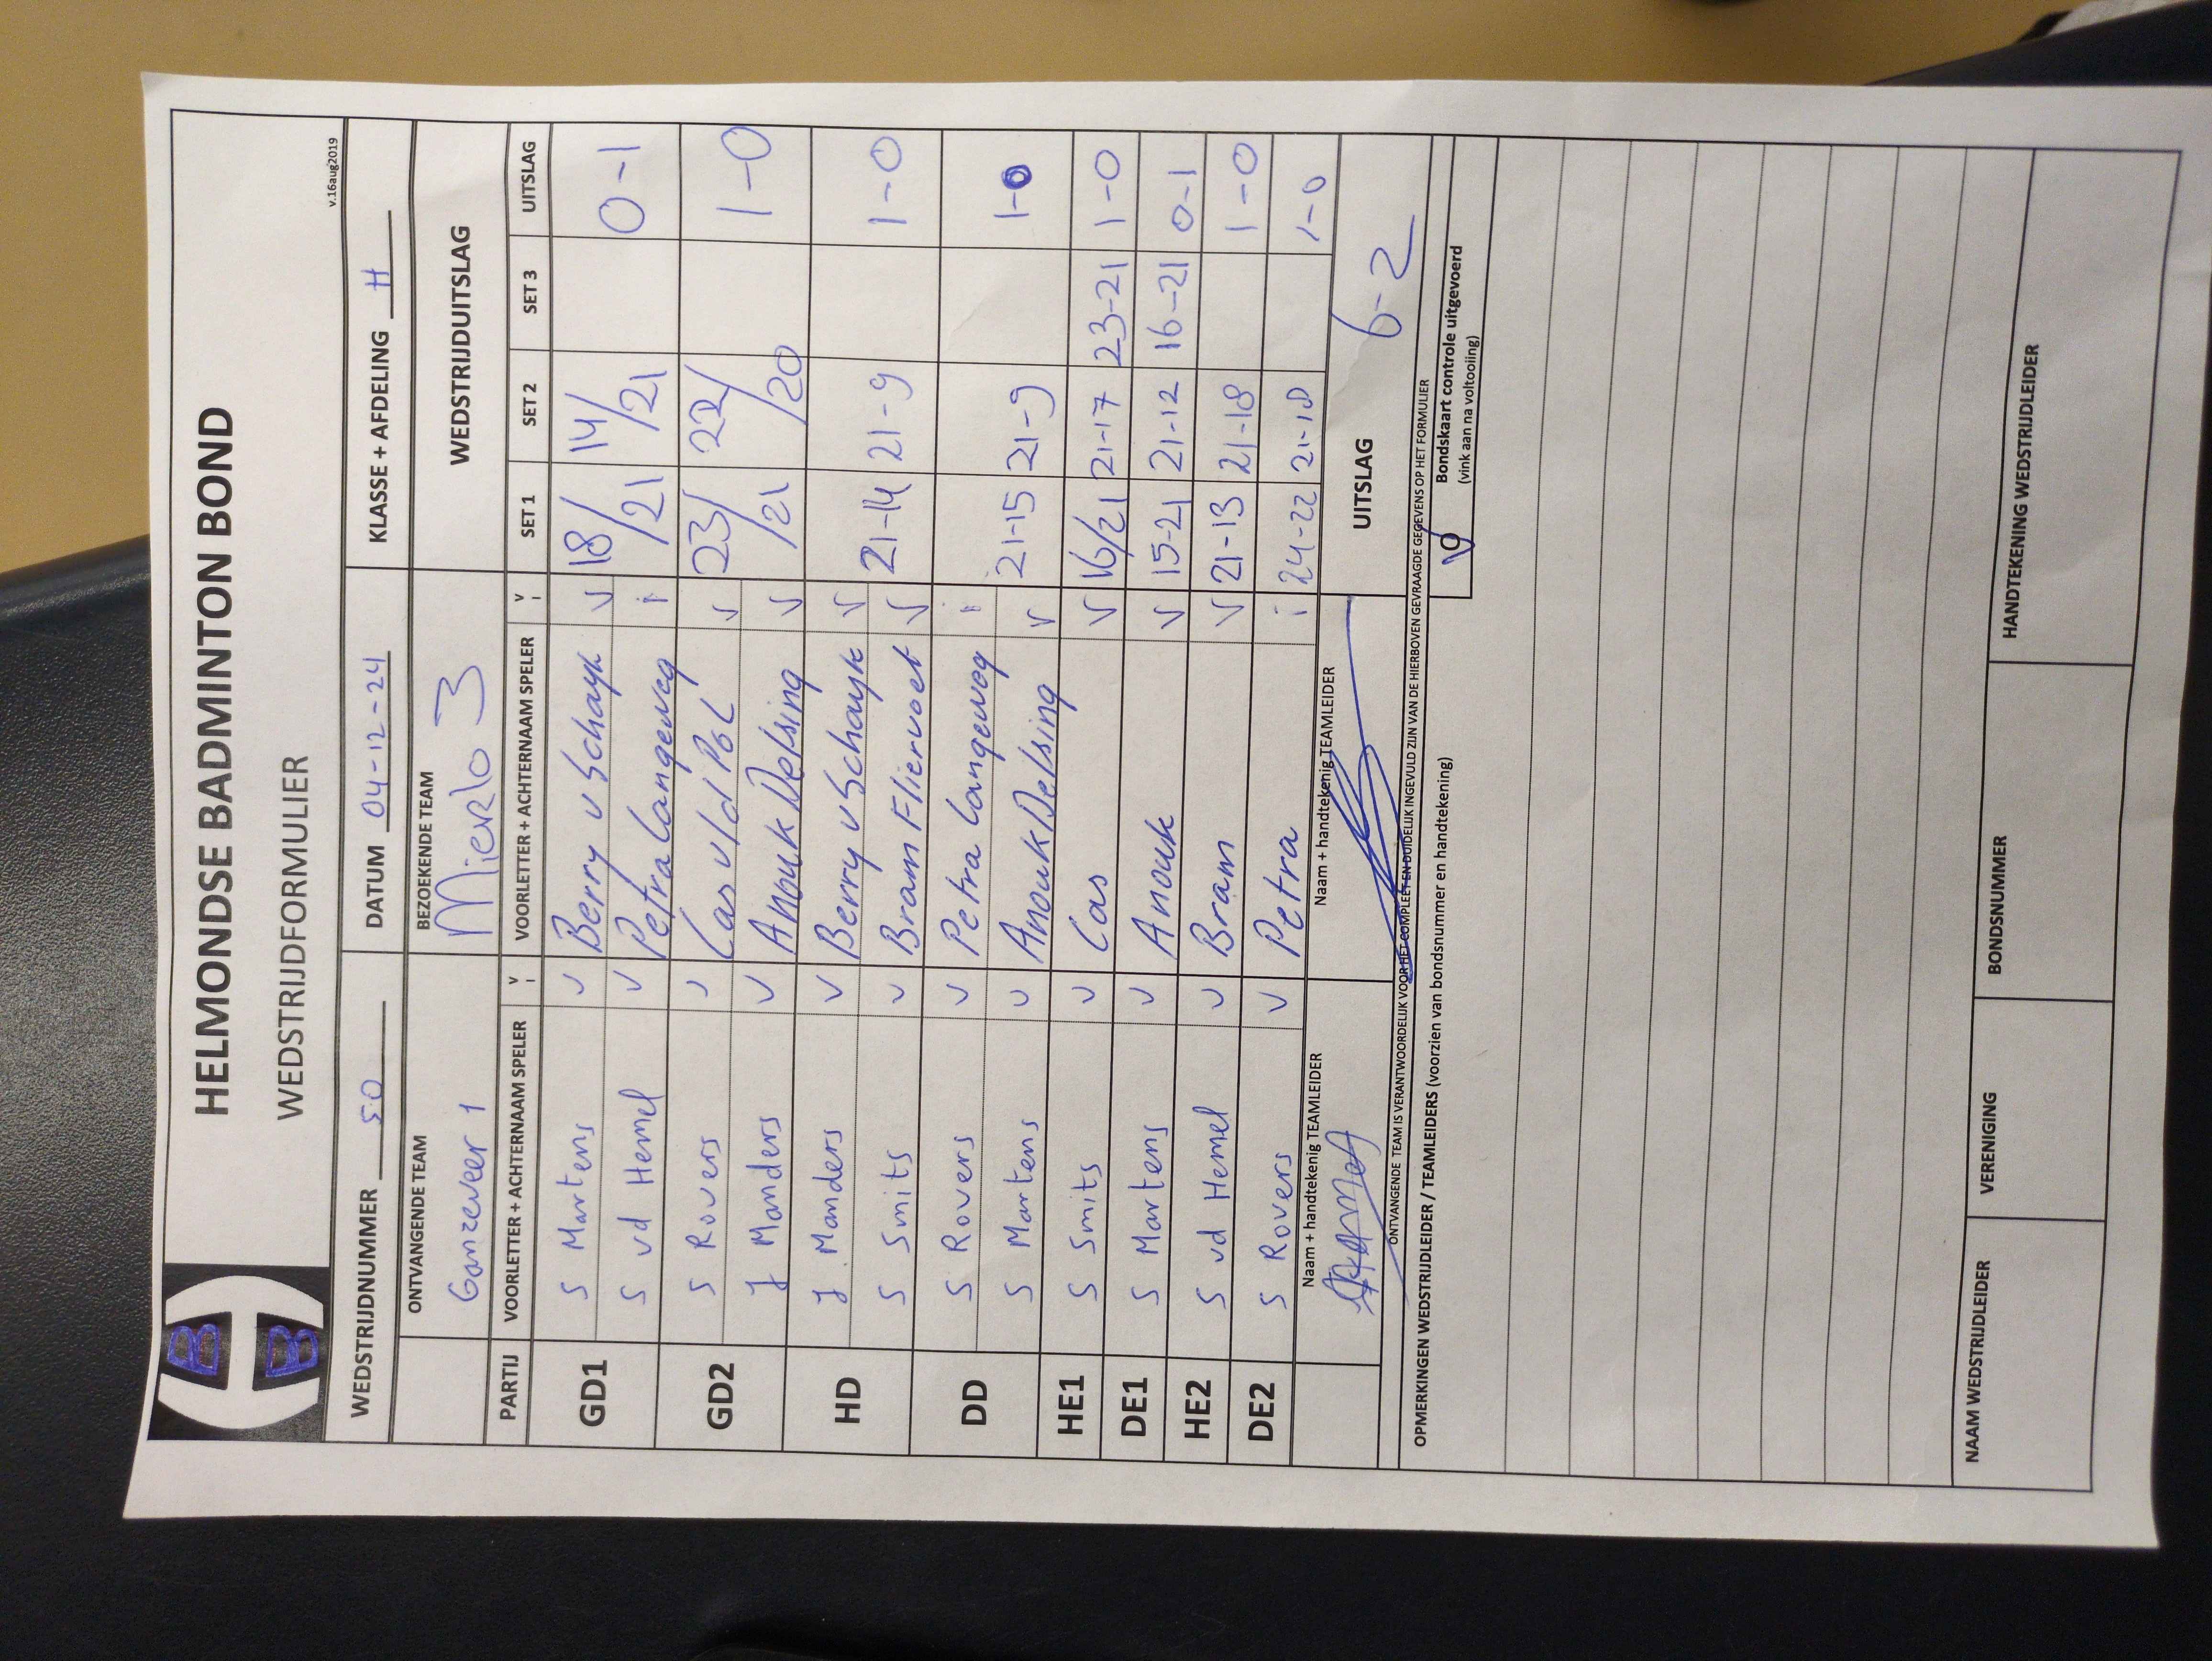 HELMONDSE BADMINTON BOND
WEDSTRIJDFORMULIER
v.16aug2019
B
B
WEDSTRIJDNUMMER 50 DATUM 04-12-24 KLASSE + AFDELING H
ONTVANGENDE TEAM BEZOEKENDE TEAM WEDSTRIJDUITSLAG
Ganzeveer 1 Mierlo 3
PARTIJ VOORLETTER + ACHTERNAAM SPELER V I VOORLETTER + ACHTERNAAM SPELER V I SET 1 SET 2 SET 3 UITSLAG
GD1 S Martens v Berry v Schayk v 18/21 14/21 0-1
S vd Hemel v Petra Langeweg i
GD2 S Rovers v Cas v/d Pol v 23/21 22/20 1-0
J Manders v Anouk Delsing v
HD J Manders v Berry v Schayk v 21-14 21-9 1-0
S Smits v Bram Fliervoet v
DD S Rovers v Petra Langeweg i 21-15 21-9 1-0
S Martens v Anouk Delsing v
HE1 S Smits v Cas v 16/21 21-17 23-21 1-0
DE1 S Martens v Anouk v 15-21 21-12 16-21 0-1
HE2 S vd Hemel v Bram v 21-13 21-18 1-0
DE2 S Rovers v Petra i 24-22 21-18 1-0
Naam + handtekenig TEAMLEIDER Naam + handtekenig TEAMLEIDER UITSLAG 6-2
ONTVANGENDE TEAM IS VERANTWOORDELIJK VOOR HET COMPLEET EN DUIDELIJK INGEVULD ZIJN VAN DE HIERBOVEN GEVRAAGDE GEGEVENS OP HET FORMULIER
OPMERKINGEN WEDSTRIJDLEIDER / TEAMLEIDERS (voorzien van bondsnummer en handtekening)
O Bondskaart controle uitgevoerd
(vink aan na voltooiing)
NAAM WEDSTRIJDLEIDER VERENIGING BONDSNUMMER HANDTEKENING WEDSTRIJDLEIDER